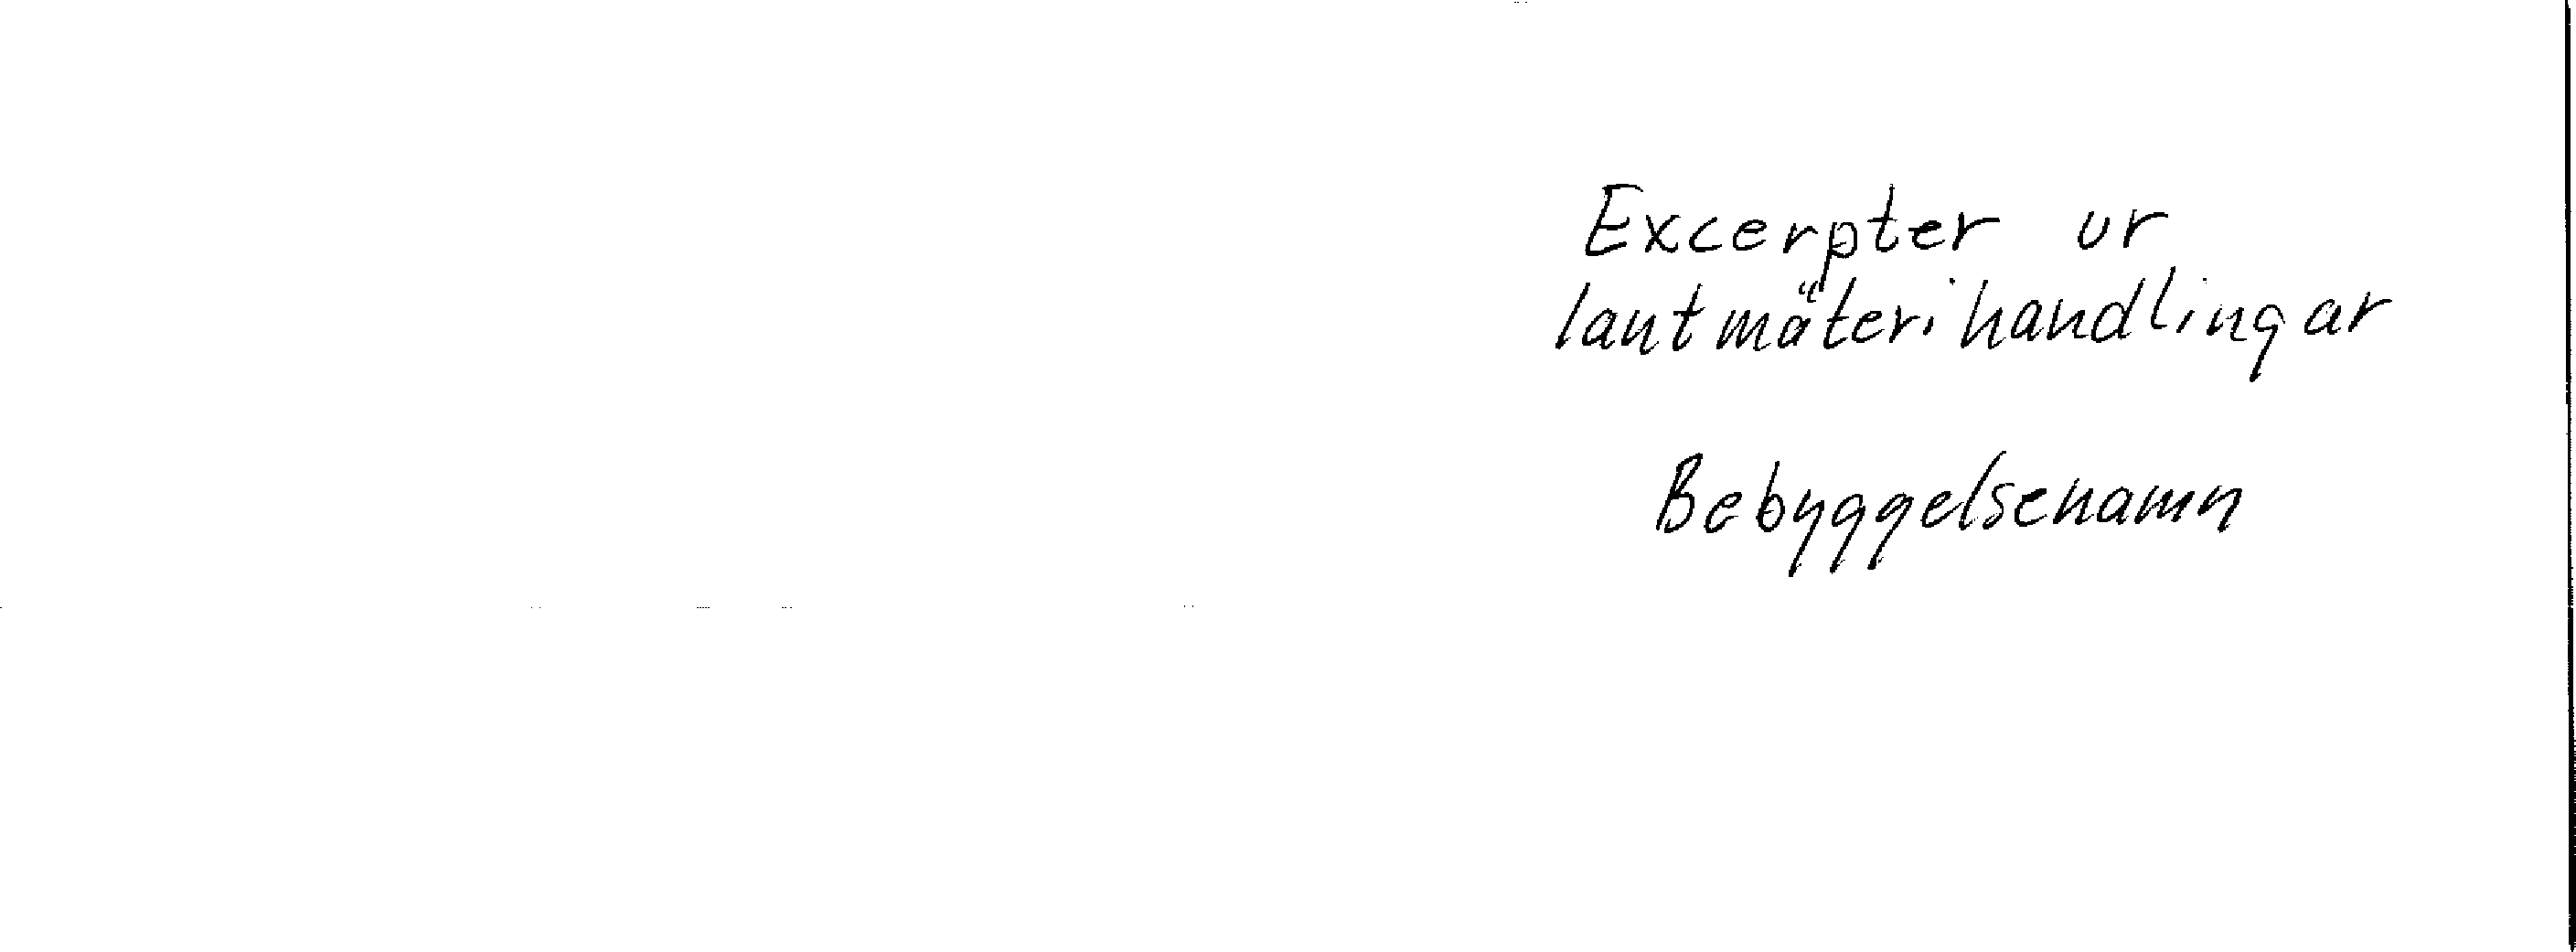 Excerpter ur
lantmäterihandlingar
Bebyggelsenamn